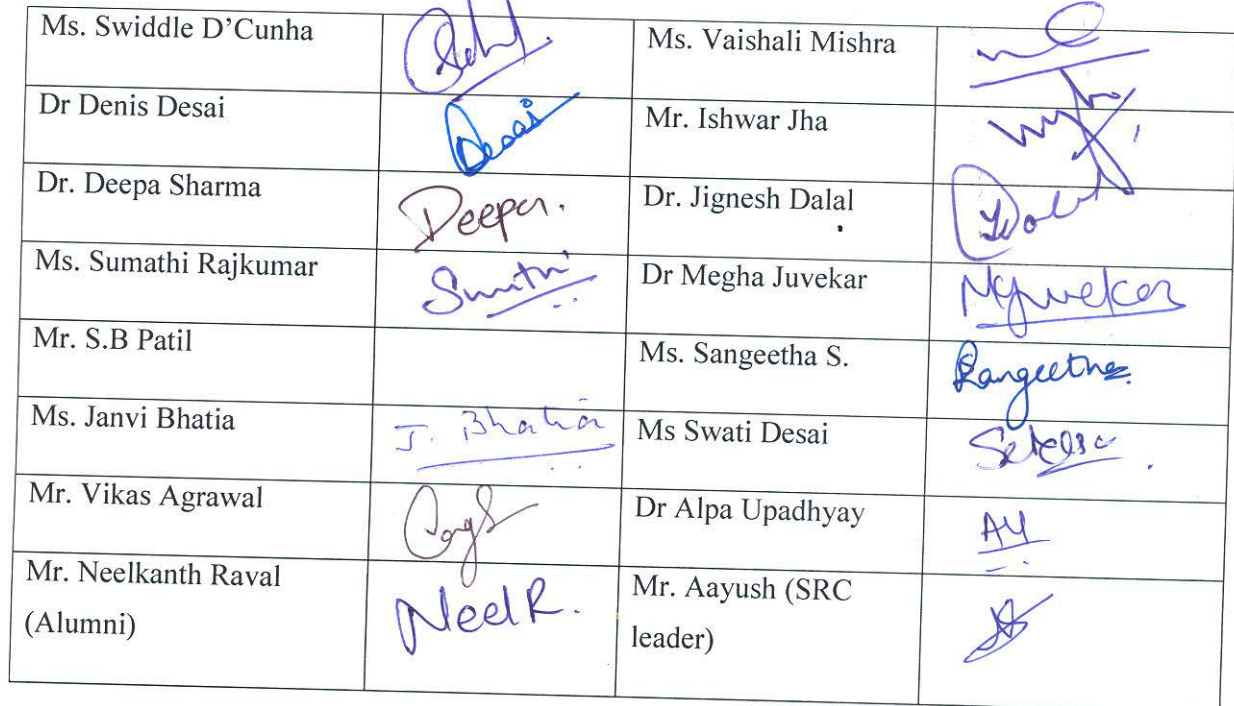 Ms. Swiddle D’Cunha Ms. Vaishali Mishra
Dr Denis Desai Desai Mr. Ishwar Jha
Dr. Deepa Sharma Deepa. Dr. Jignesh Dalal
Ms. Sumathi Rajkumar Dr Megha Juvekar MJuvekar
Mr. S.B Patil Ms. Sangeetha S. Sangeetha
Ms. Janvi Bhatia J. Bhatia Ms Swati Desai
Mr. Vikas Agrawal Dr Alpa Upadhyay AU
Mr. Neelkanth Raval NeelR. Mr. Aayush (SRC
(Alumni) leader)